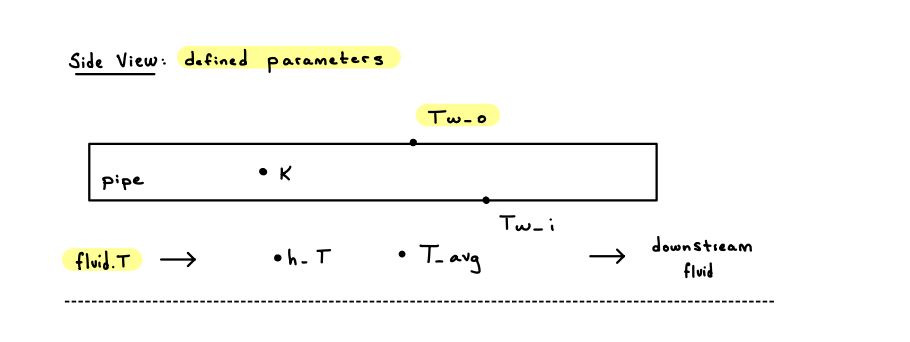 Side View: defined parameters
Tw_o
pipe
K
Tw_i
fluid.T
h_T
T_avg
downstream
fluid